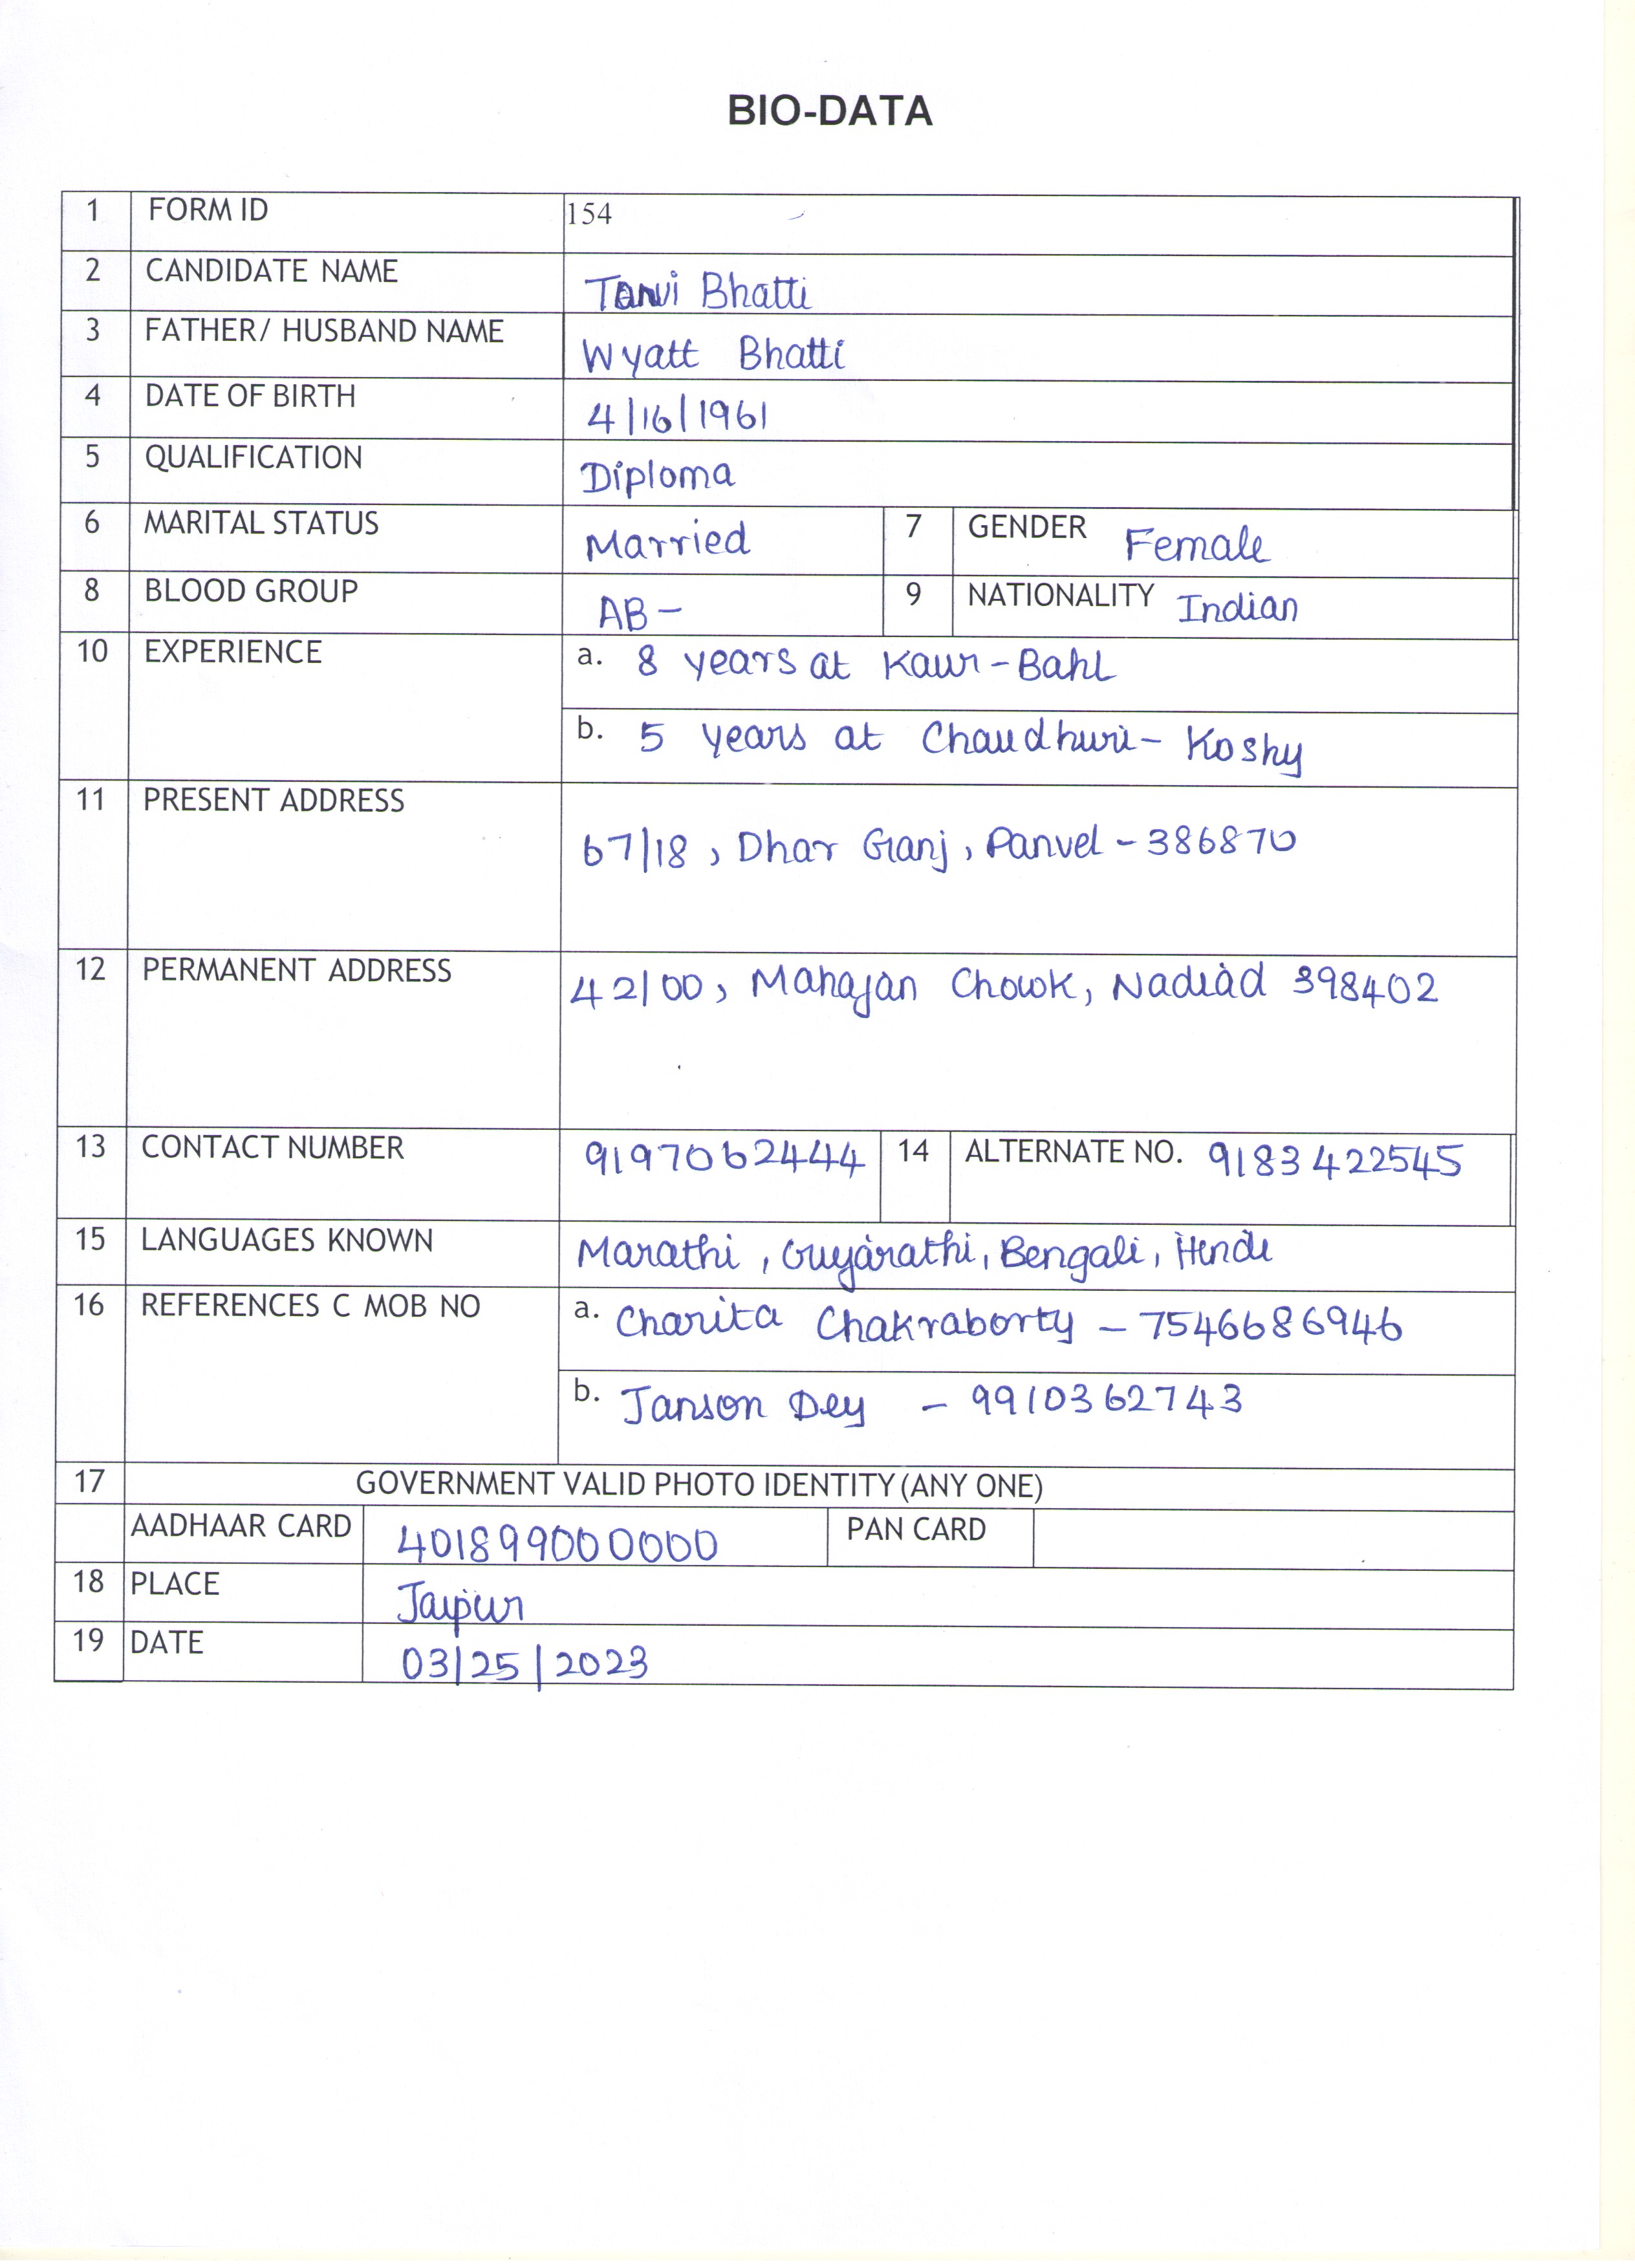 BIO-DATA
1 FORM ID 154
2 CANDIDATE NAME Tanvi Bhatti
3 FATHER/ HUSBAND NAME Wyatt Bhatti
4 DATE OF BIRTH 4/16/1961
5 QUALIFICATION Diploma
6 MARITAL STATUS Married 7 GENDER Female
8 BLOOD GROUP AB- 9 NATIONALITY Indian
10 EXPERIENCE a. 8 years at Kaur-Bahl
b. 5 years at Chaudhuri- Koshy
11 PRESENT ADDRESS
67/18, Dhar Ganj, Panvel - 386870
12 PERMANENT ADDRESS 42/00, Mahajan Chowk, Nadiad 398402
13 CONTACT NUMBER 9197062444 14 ALTERNATE NO. 9183422545
15 LANGUAGES KNOWN Marathi, Gujarathi, Bengali, Hindi
16 REFERENCES C MOB NO a. Charita Chakraborty - 7546686946
b. Janson Dey - 9910362743
17 GOVERNMENT VALID PHOTO IDENTITY (ANY ONE)
AADHAAR CARD 401899000000 PAN CARD
18 PLACE Jaipur
19 DATE 03/25/2023